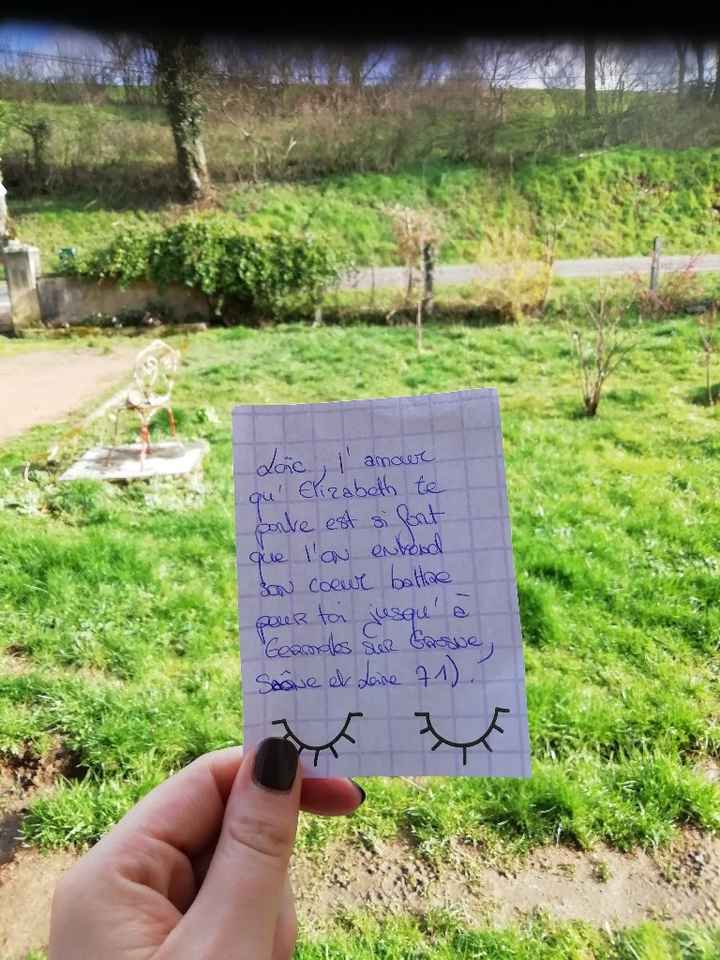 Loïc, l'amour
qu'Elizabeth te
porte est si fort
que l'on entend
son coeur battre
pour toi jusqu'à
Germolles sur Grosne,
Saône et Loire 71).